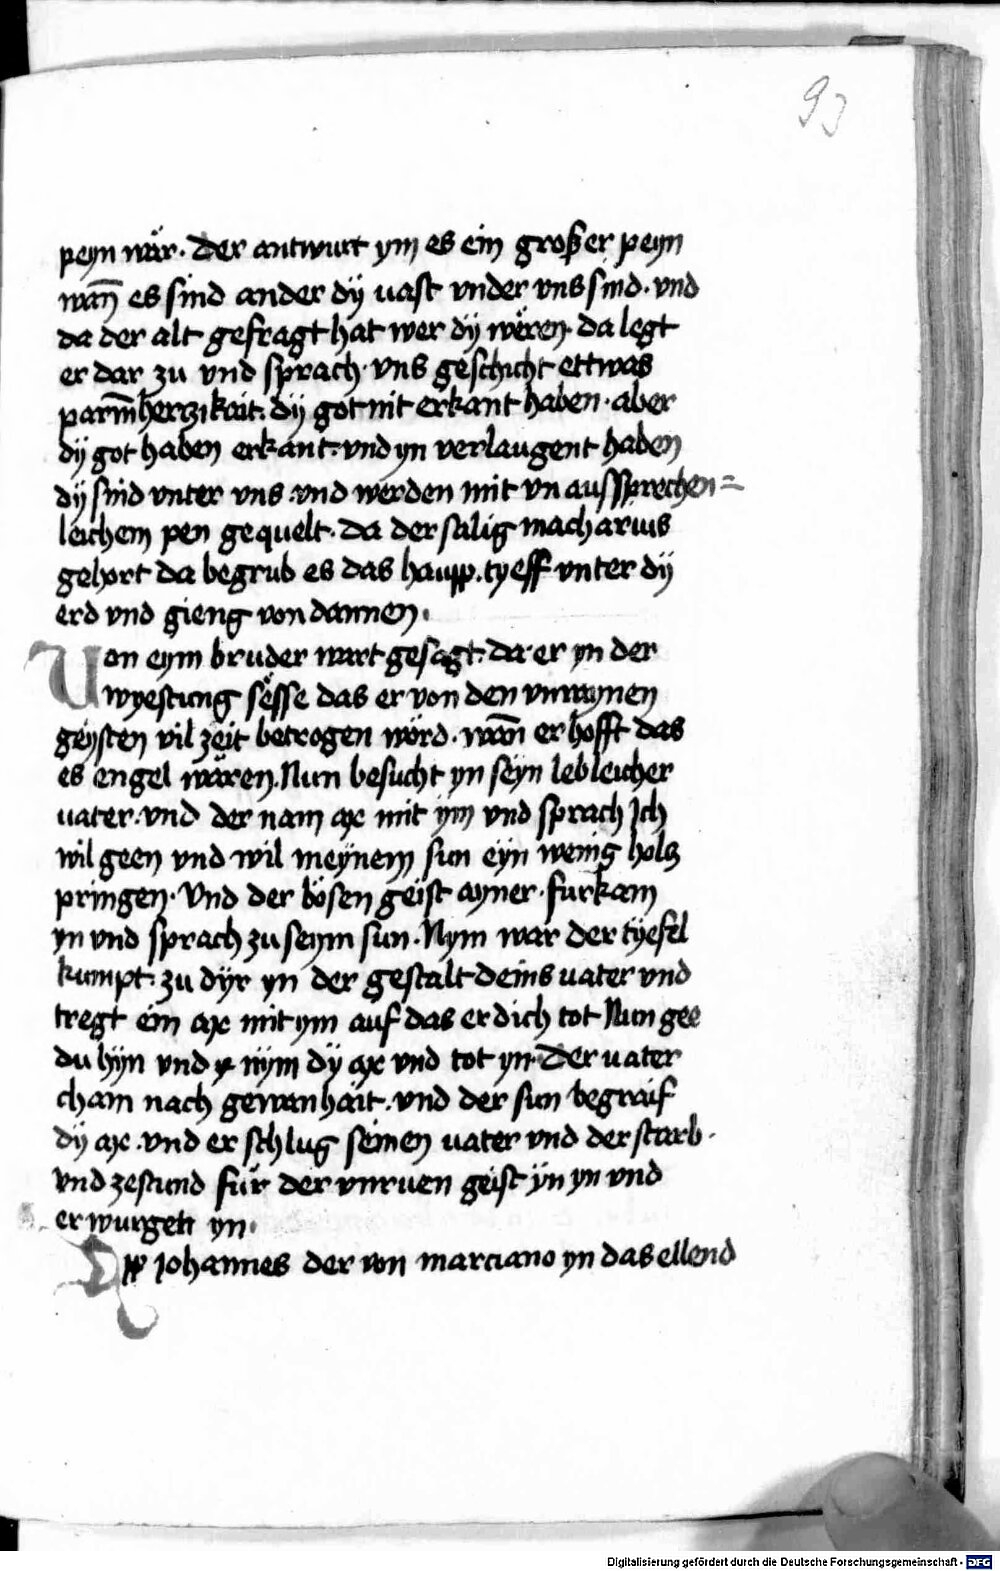 93
peyn wär. Der antwurt ym es ein großer peyn
wan̄ es sind ander dÿ vast vnder vns sind. vnd
da der alt gefragt hat wer dÿ wëren. da legt
er dar zu vnd sprach. vns geschicht ettwas
parm̄hertzikait. dÿ got nit erkant haben. aber
dÿ got haben erkant. vnd yn verlaugent haben
dÿ sind vnter vns. vnd werden mit vn aussprechen=
leichem pen gequelt. da der salig macharius
gehort da begrub es das haupp. tyeff vnter dÿ
erd vnd gieng von dannen.
Uon eym bruder wart gesagt. da er yn der
wyestung sësse das er von den vnraynen
geÿsten vil zeit betrogen wörd. wan̄ er hofft das
es engel wären. Nun besucht yn seyn lebleicher
uater. vnd der nam ax mit ym vnd sprach Ich
wil geen vnd wil meÿnem sun eÿn wenig holtz
pringen. Vnd der bösen geist ayner. furkam
yn vnd sprach zu seym sun. Nym war der tÿefel
kumpt. zu dÿr yn der gestalt deins uater vnd
tregt ein ax mit ym auf das er dich tot Nun gee
du hÿn vnd nÿm dÿ ax vnd tot yn. Der uater
cham nach gewanhait. vnd der sun begraif
dÿ ax. vnd er schlug seinen uater vnd der starb.
vnd zestund für der vnruen geist ÿn yn vnd
er wurgett yn.
App Johannes der von marciano yn das ellend
Digitalisierung gefördert durch die Deutsche Forschungsgemeinschaft - DFG